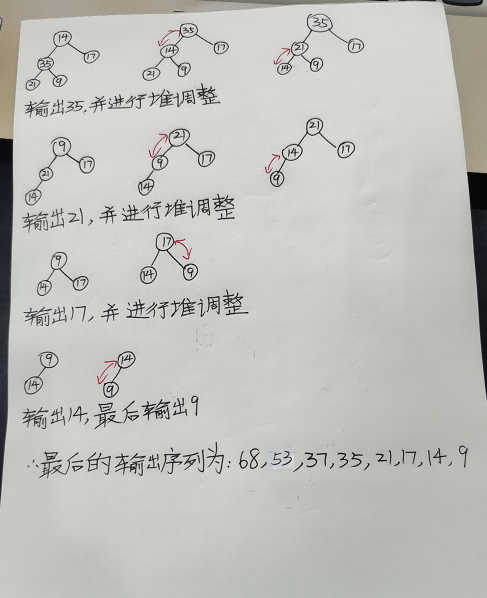 14 35 35
35 17 14 17 21 17
21 9 21 9 14 9
输出35,并进行堆调整
9 21 21
21 17 9 17 14 17
14 14 9
输出21,并进行堆调整
9 17
14 17 14 9
输出17,并进行堆调整
9 14
14 9
输出14,最后输出9
∴最后的输出序列为:68,53,37,35,21,17,14,9